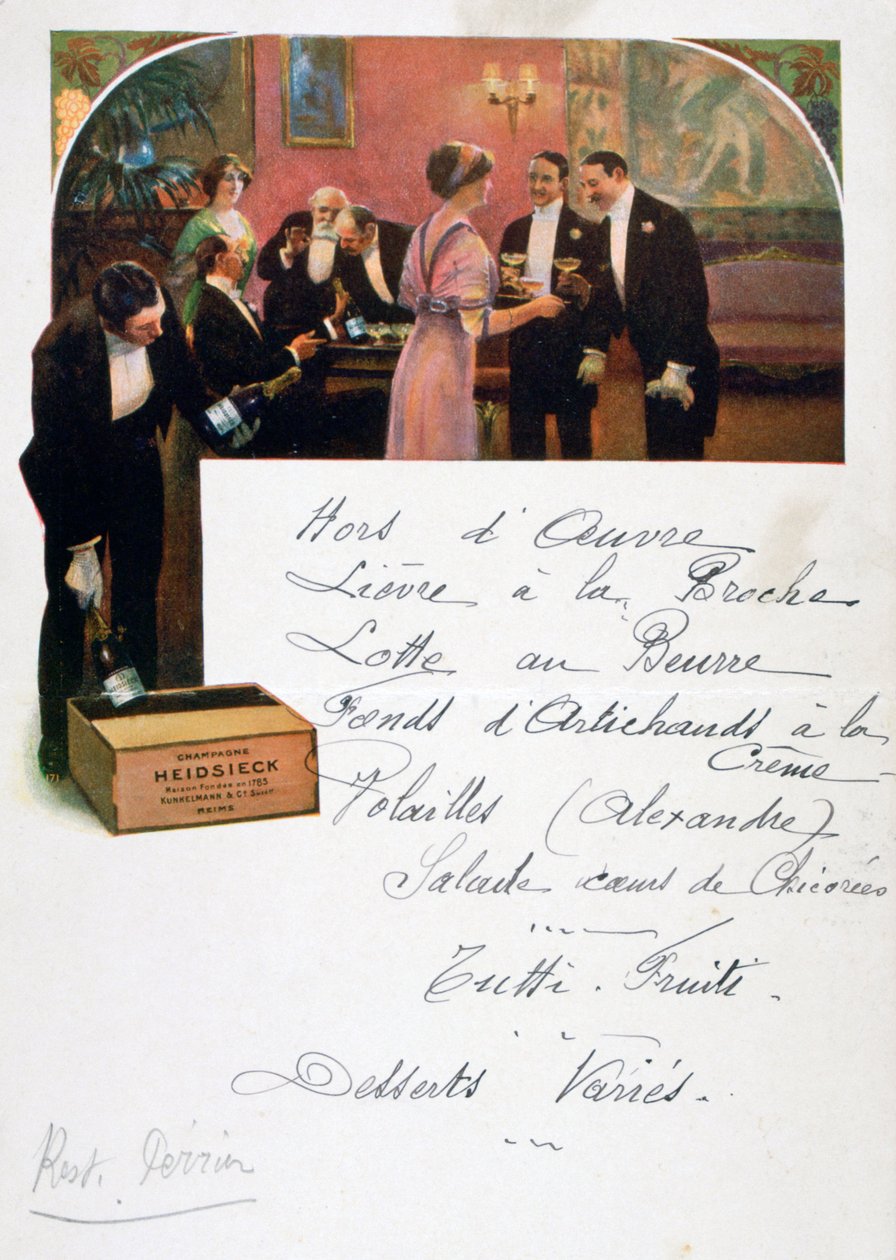 CHAMPAGNE
HEIDSIECK
Maison Fondée en 1785
KUNKELMANN & Cº Succrs
REIMS
171
Hors d'Œuvre
Lièvre à la Broche
Lotte au Beurre
Fonds d'Artichauds à la
Crème
Volailles (Alexandre)
Salade cœurs de Chicorées
Tutti. Fruiti.
Desserts Variés.
Rest. Perrier